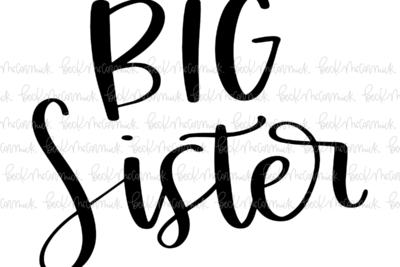 BIG
Sister